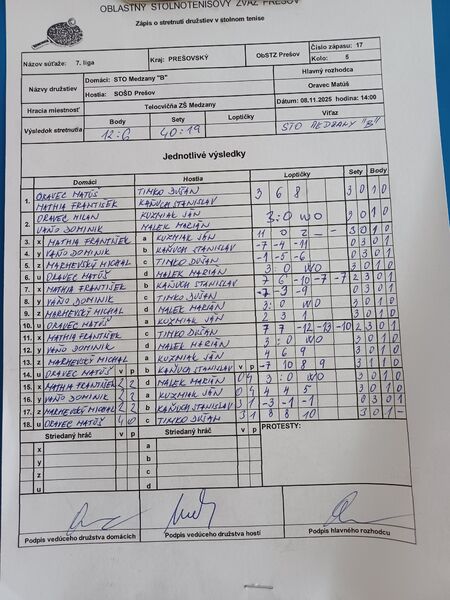 OBLASTNÝ STOLNOTENISOVÝ ZVÄZ PREŠOV
Zápis o stretnutí družstiev v stolnom tenise
Názov súťaže: 7. liga Kraj: PREŠOVSKÝ ObSTZ Prešov Číslo zápasu: 17
Kolo: 5
Názvy družstiev Domáci: STO Medzany "B" Hlavný rozhodca
Hostia: SOŠD Prešov Oravec Matúš
Hracia miestnosť Telocvičňa ZŠ Medzany Dátum: 08.11.2025 hodina: 14:00
Výsledok stretnutia Body Sety Loptičky Víťaz
12:6 40:19 STO MEDZANY "B"
Jednotlivé výsledky
Domáci Hostia Loptičky Sety Body
1. ORAVEC MATÚŠ TIMKO DUŠAN 3 6 8 3 0 1 0
MATHIA FRANTIŠEK KAŇUCH STANISLAV
2. ORAVEC MILAN KUZMIAK JÁN 3:0 WO 3 0 1 0
VAŇO DOMINIK MALEK MARIÁN
3. x MATHIA FRANTIŠEK a KUZMIAK JÁN 11 0 2 3 0 1 0
4. y VAŇO DOMINIK b KAŇUCH STANISLAV -7 -4 -11 0 3 0 1
5. z MARHEVSKÝ MICHAL c TIMKO DUŠAN -1 -5 -6 0 3 0 1
6. u ORAVEC MATÚŠ d MALEK MARIÁN 3:0 WO 3 0 1 0
7. x MATHIA FRANTIŠEK b KAŇUCH STANISLAV 7 6 -10 -7 -7 2 3 0 1
8. y VAŇO DOMINIK c TIMKO DUŠAN -7 -3 -9 0 3 0 1
9. z MARHEVSKÝ MICHAL d MALEK MARIÁN 3:0 WO 3 0 1 0
10. u ORAVEC MATÚŠ a KUZMIAK JÁN 2 3 1 3 0 1 0
11. x MATHIA FRANTIŠEK c TIMKO DUŠAN 7 7 -12 -13 -10 2 3 0 1
12. y VAŇO DOMINIK d MALEK MARIÁN 3:0 WO 3 0 1 0
13. z MARHEVSKÝ MICHAL a KUZMIAK JÁN 4 6 9 3 0 1 0
14. u ORAVEC MATÚŠ v p b KAŇUCH STANISLAV v p -7 10 8 9 3 1 1 0
15. x MATHIA FRANTIŠEK 2 2 d MALEK MARIÁN 0 4 3:0 WO 3 0 1 0
16. y VAŇO DOMINIK 2 2 a KUZMIAK JÁN 0 4 4 4 5 3 0 1 0
17. z MARHEVSKÝ MICHAL 2 2 b KAŇUCH STANISLAV 3 1 -3 -1 -1 0 3 0 1
18. u ORAVEC MATÚŠ 4 0 c TIMKO DUŠAN 3 1 8 8 10 3 0 1
Striedaný hráč v p Striedaný hráč v p PROTESTY:
x a
y b
z c
u d
Podpis vedúceho družstva domácich Podpis vedúceho družstva hostí Podpis hlavného rozhodcu